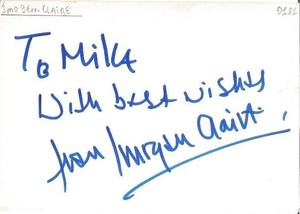 IMOGEN CLAIRE
To Mike
With best wishes
from Imogen Claire